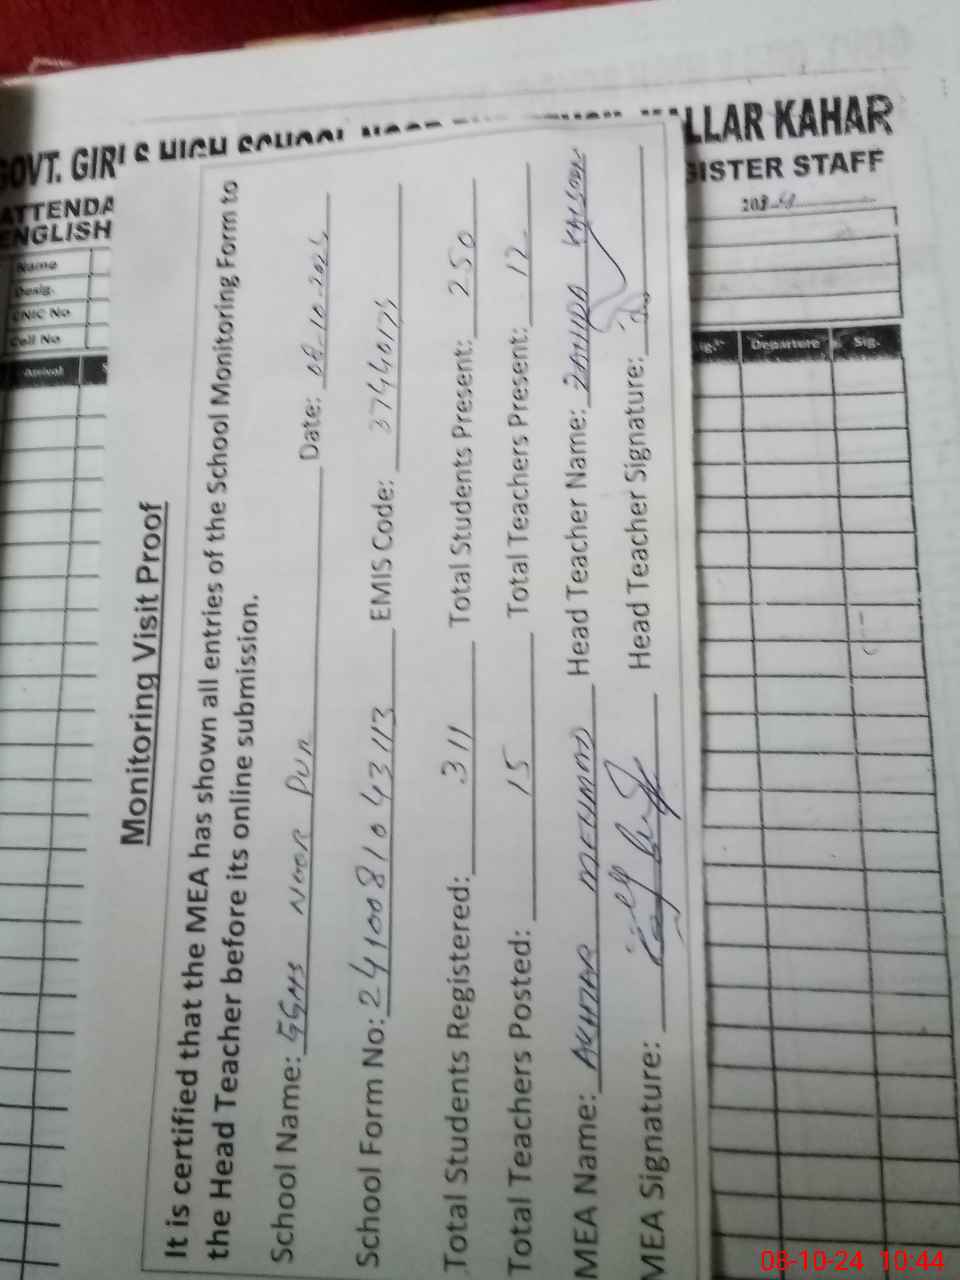 GOVT. GIRLS HIGH SCHOOL NOOR PUR KALLAR KAHAR
ATTENDA GISTER STAFF
ENGLISH
Name
Desig.
CNIC No
Cell No
Arrival
Departure Sig.
Monitoring Visit Proof
It is certified that the MEA has shown all entries of the School Monitoring Form to
the Head Teacher before its online submission.
School Name: GGHS NOOR PUR Date:
School Form No: 2410081043113 EMIS Code: 37440175
Total Students Registered: 311 Total Students Present: 250
Total Teachers Posted: 15 Total Teachers Present: 12
MEA Name: AKHTAR MEHMOOD Head Teacher Name: ZAHIDA KALSOOM
MEA Signature: Head Teacher Signature:
08-10-24 10:44